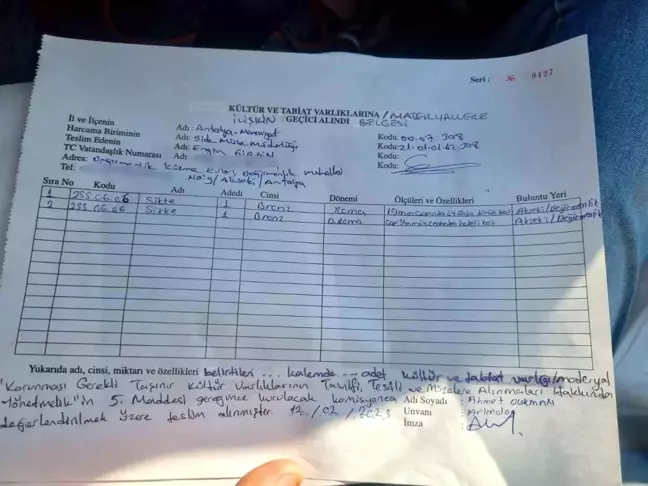 Seri : № 0427
KÜLTÜR VE TABİAT VARLIKLARINA / MATERYALLERE
İLİŞKİN GEÇİCİ ALINDI BELGESİ
İl ve İlçenin Adı: Antalya - Manavgat Kodu: 00.07.708
Harcama Biriminin Adı: Side Müze Müdürlüğü Kodu: 21.01.01.62.708
Teslim Edenin Adı: Engin Kodu:
TC Vatandaşlık Numarası
Adres: Değirmenlik Küme Evleri Değirmenlik mahallesi
Tel: No: 9/Akseki/Antalya
Sıra No Kodu Adı Adedi Cinsi Dönemi Ölçüleri ve Özellikleri Buluntu Yeri
1 255.06.06 Sikke 1 Bronz Roma Akseki/Değirmenlik
2 255.06.06 Sikke 1 Bronz Roma Akseki/Değirmenlik
Yukarıda adı, cinsi, miktarı ve özellikleri belirtilen ... kalemde ... adet kültür ve tabiat varlığı/materyal
"Korunması Gerekli Taşınır Kültür Varlıklarının Tasnifi, Tescili ve Müzelere Alınmaları Hakkında
Yönetmelik"in 5. Maddesi gereğince kurulacak komisyonca Adı Soyadı : Ahmet
değerlendirilmek üzere teslim alınmıştır. 12/02/2023 Unvanı : Arkeolog
İmza :